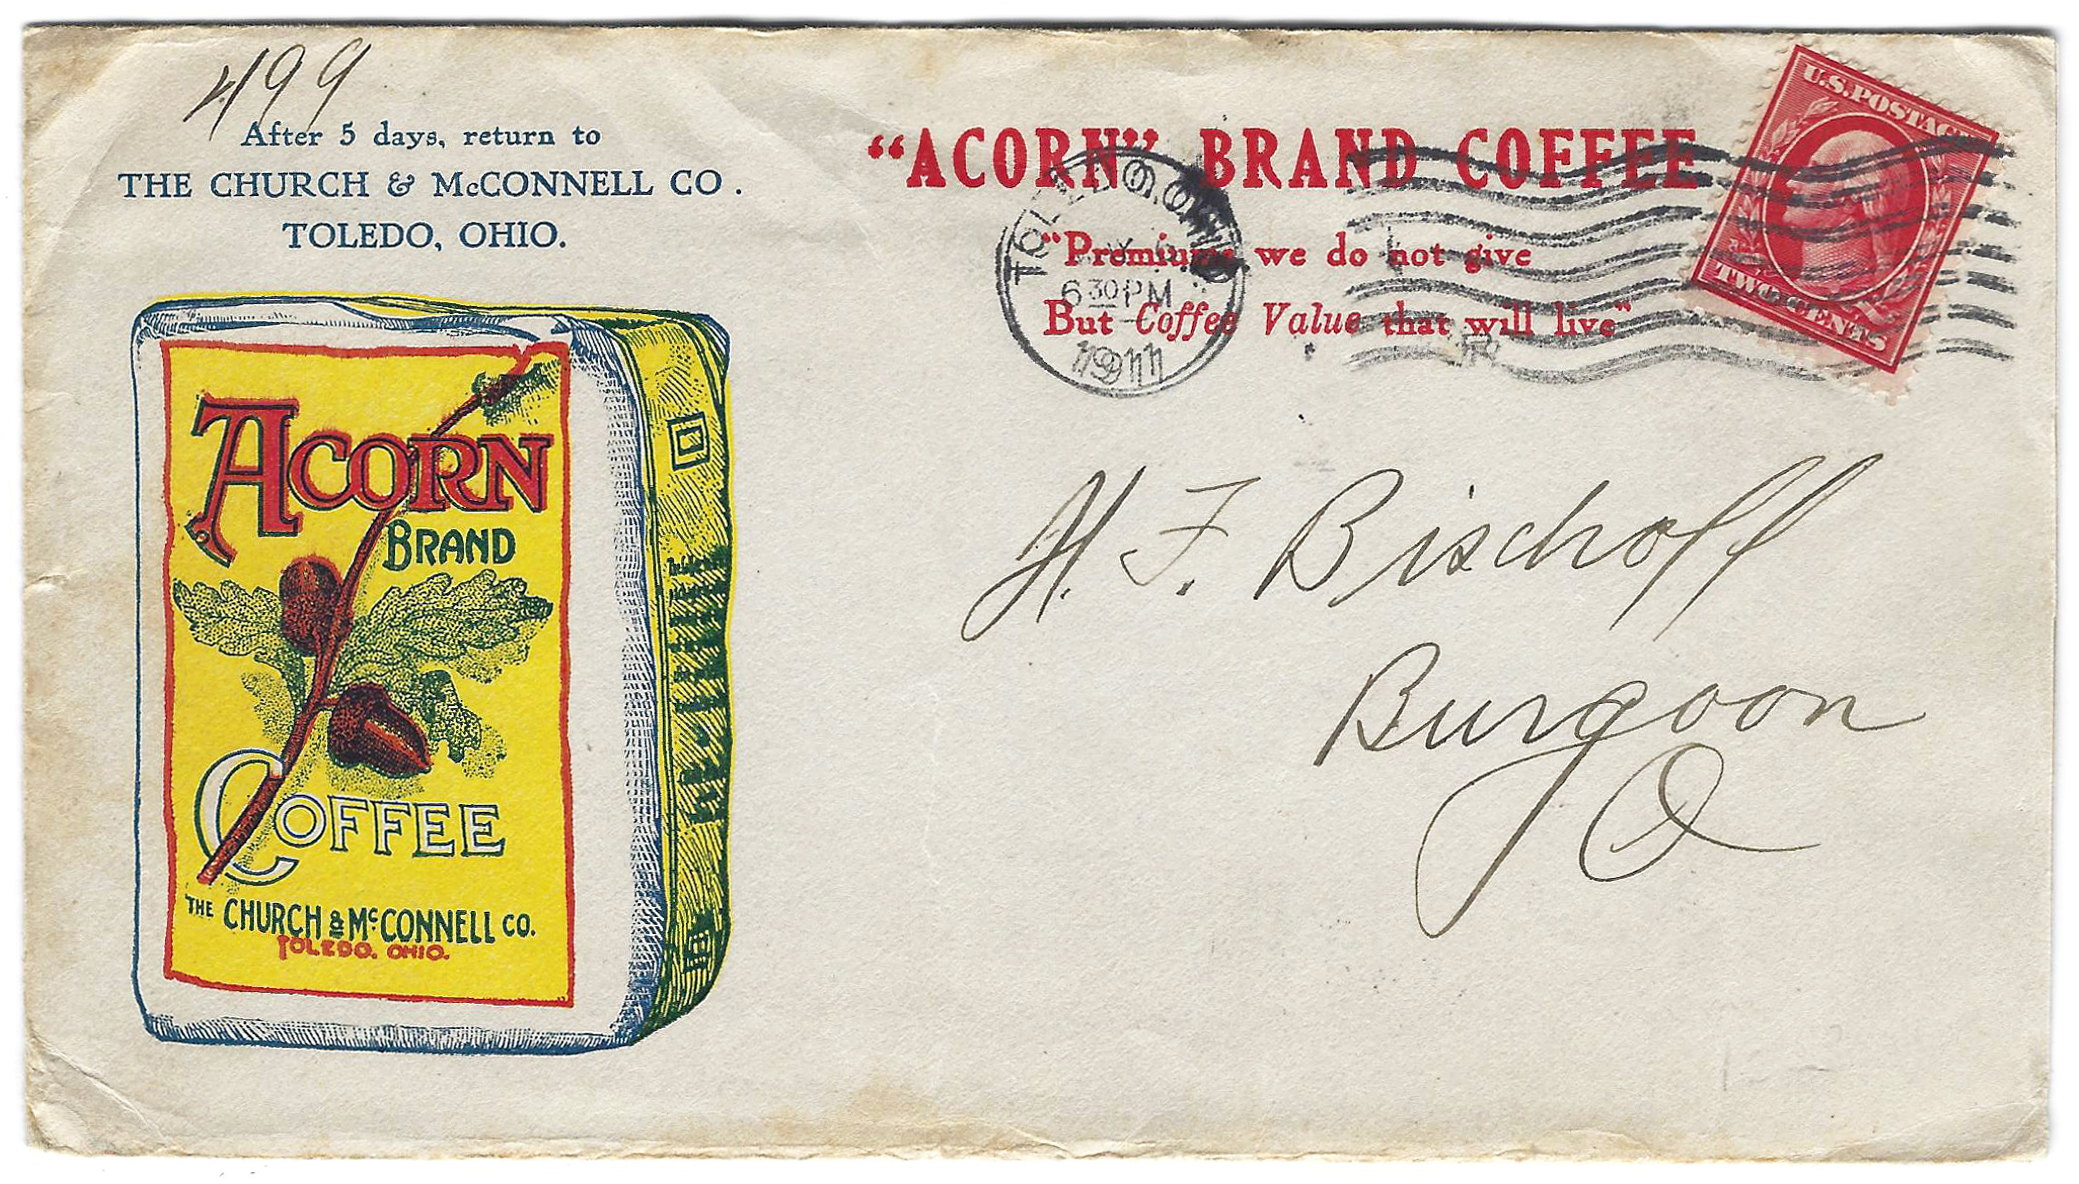 499
After 5 days, return to
THE CHURCH & McCONNELL CO.
TOLEDO, OHIO.
"ACORN" BRAND COFFEE
"Premiums we do not give
But Coffee Value that will live"
U.S. POSTAGE
TWO CENTS
TOLEDO, OHIO
6 30 PM
1911
ACORN
BRAND
COFFEE
THE CHURCH & McCONNELL CO.
TOLEDO, OHIO.
H. F. Bischoff
Burgoon
O